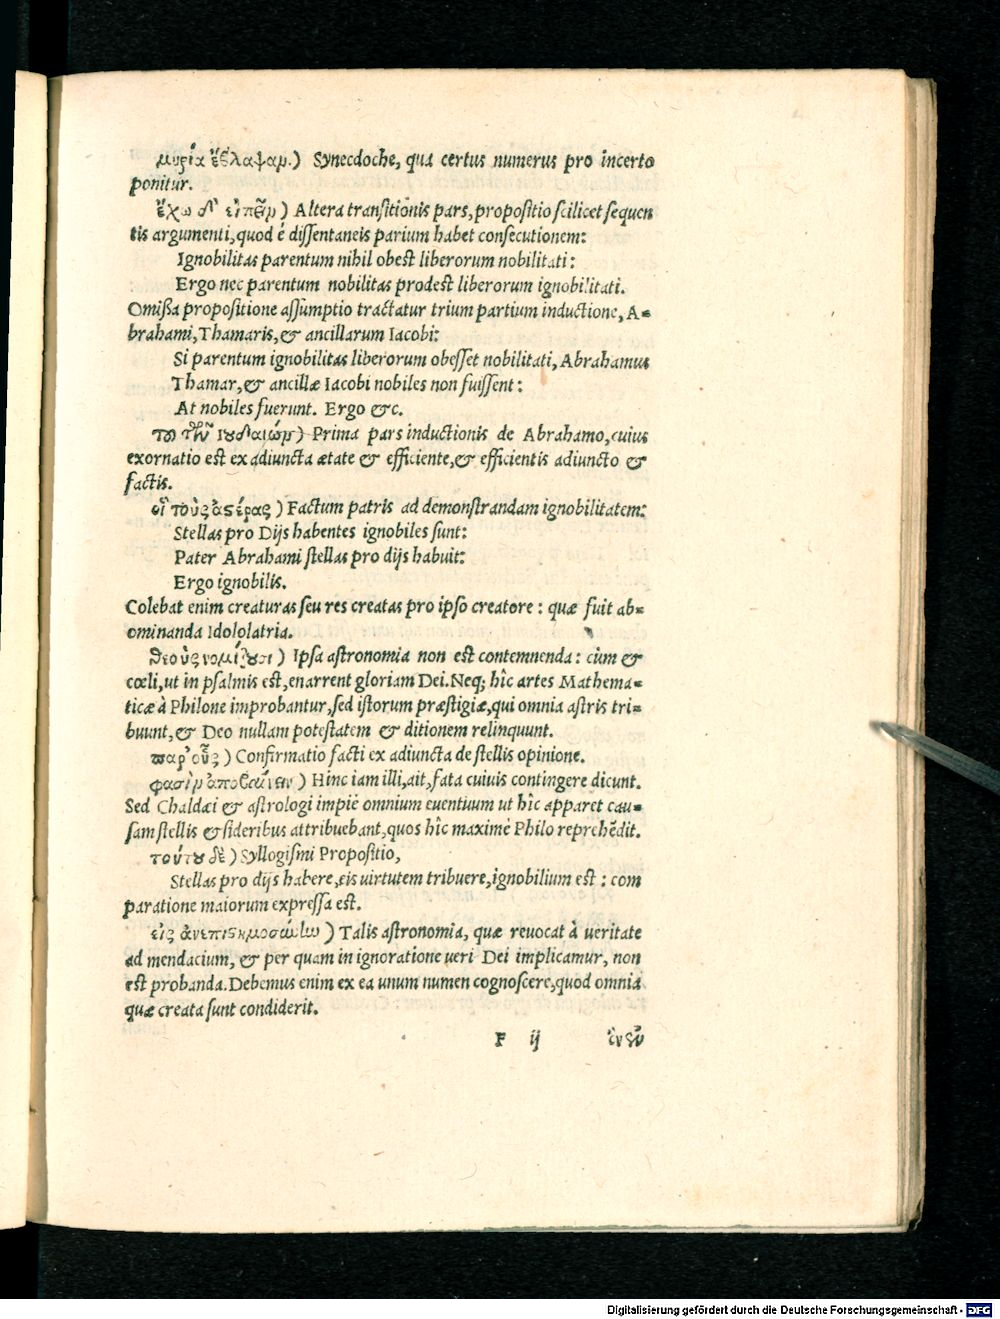 μυρία ἐξέλαψαν.) Synecdoche, qua certus numerus pro incerto
ponitur.
ἔχω δ' εἰπεῖν ) Altera transitionis pars, propositio scilicet sequen
tis argumenti, quod é dissentaneis parium habet consecutionem:
Ignobilitas parentum nihil obest liberorum nobilitati:
Ergo nec parentum nobilitas prodest liberorum ignobilitati.
Omißa propositione assumptio tractatur trium partium inductione, A=
brahami, Thamaris, & ancillarum Iacobi:
Si parentum ignobilitas liberorum obesset nobilitati, Abrahamus
Thamar, & ancillæ Iacobi nobiles non fuissent:
At nobiles fuerunt. Ergo &c.
τοῦ τῶν ἰουδαιών) Prima pars inductionis de Abrahamo, cuius
exornatio est ex adiuncta ætate & efficiente, & efficientis adiuncto &
factis.
οἳ τοὺς ἀστέρας ) Factum patris ad demonstrandam ignobilitatem:
Stellas pro Dijs habentes ignobiles sunt:
Pater Abrahami stellas pro dijs habuit:
Ergo ignobilis.
Colebat enim creaturas seu res creatas pro ipso creatore : quæ fuit ab=
ominanda Idololatria.
θεοὺς νομίζουσι ) Ipsa astronomia non est contemnenda: cùm &
cœli, ut in psalmis est, enarrent gloriam Dei. Neq; hîc artes Mathema=
ticæ à Philone improbantur, sed istorum præstigiæ, qui omnia astris tri=
buunt, & Deo nullam potestatem & ditionem relinquunt.
παρ' οὓς ) Confirmatio facti ex adiuncta de stellis opinione.
φασὶν ἀποβαίνειν ) Hinc iam illi, ait, fata cuiuis contingere dicunt.
Sed Chaldæi & astrologi impiè omnium euentuum ut hîc apparet cau=
sam stellis & sideribus attribuebant, quos hîc maximè Philo reprehẽdit.
τούτου δὲ ) Syllogismi Propositio,
Stellas pro dijs habere, eis uirtutem tribuere, ignobilium est : com
paratione maiorum expressa est.
εἰς ἀνεπιστημοσύνην ) Talis astronomia, quæ reuocat à ueritate
ad mendacium, & per quam in ignoratione ueri Dei implicamur, non
est probanda. Debemus enim ex ea unum numen cognoscere, quod omnia
quæ creata sunt condiderit.
F ij
Digitalisierung gefördert durch die Deutsche Forschungsgemeinschaft - DFG